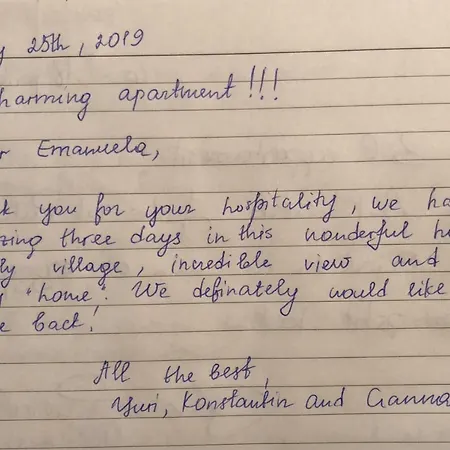 y 25th, 2019
harming apartment!!!
r Emanuela,
k you for your hospitality, we ha
zing three days in this wonderful h
ly village, incredible view and
"home". We definately would like
e back!
All the best,
Yuri, Konstantin and Gianna